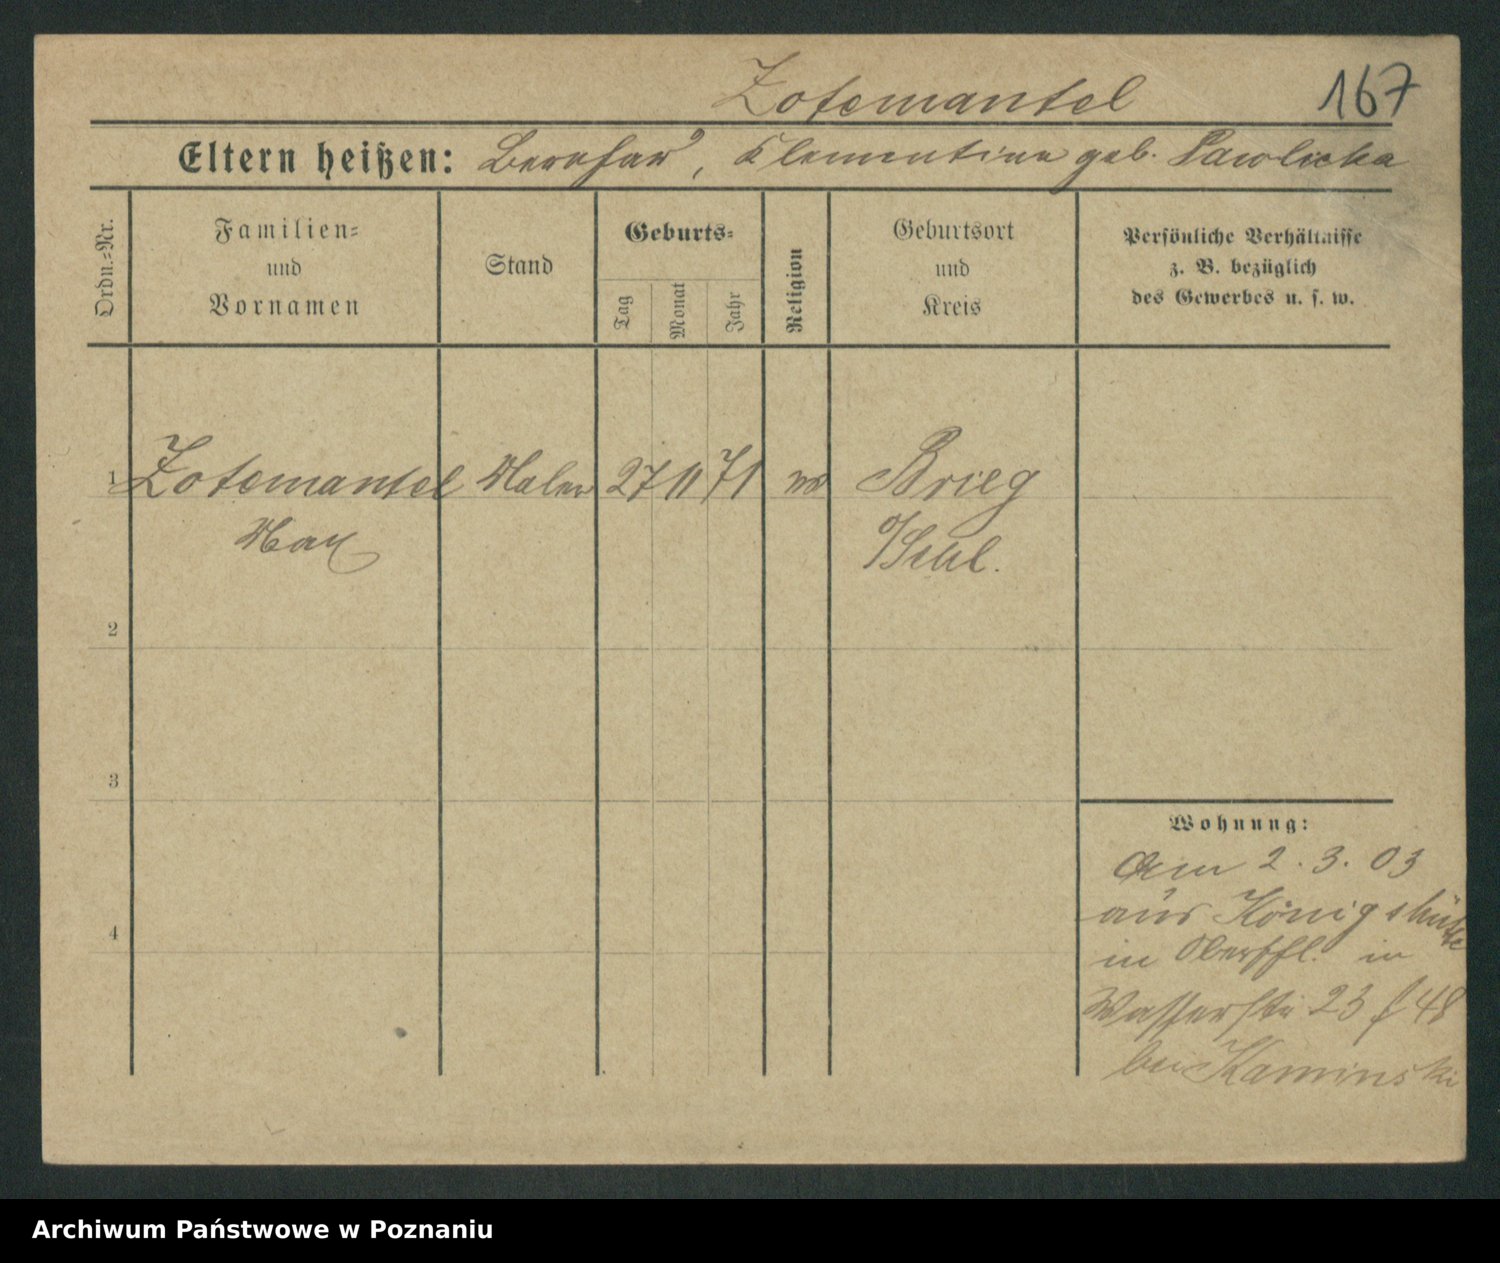 Zotemantel 167
Eltern heißen: Bernhard, Klementine geb. Pawlicka
Ordn.-Nr.
Familien-
und
Vornamen
Stand
Geburts-
Tag
Monat
Jahr
Religion
Geburtsort
und
Kreis
Persönliche Verhältnisse
z. B. bezüglich
des Gewerbes u. s. w.
1 Zotemantel Maler 27 11 71 Brieg
Max
2
3
4
Wohnung:
Am 2. 3. 03
aus Königshütte
in Oberschl. in
Wasserstr 23
bei Kaminski
Archiwum Państwowe w Poznaniu